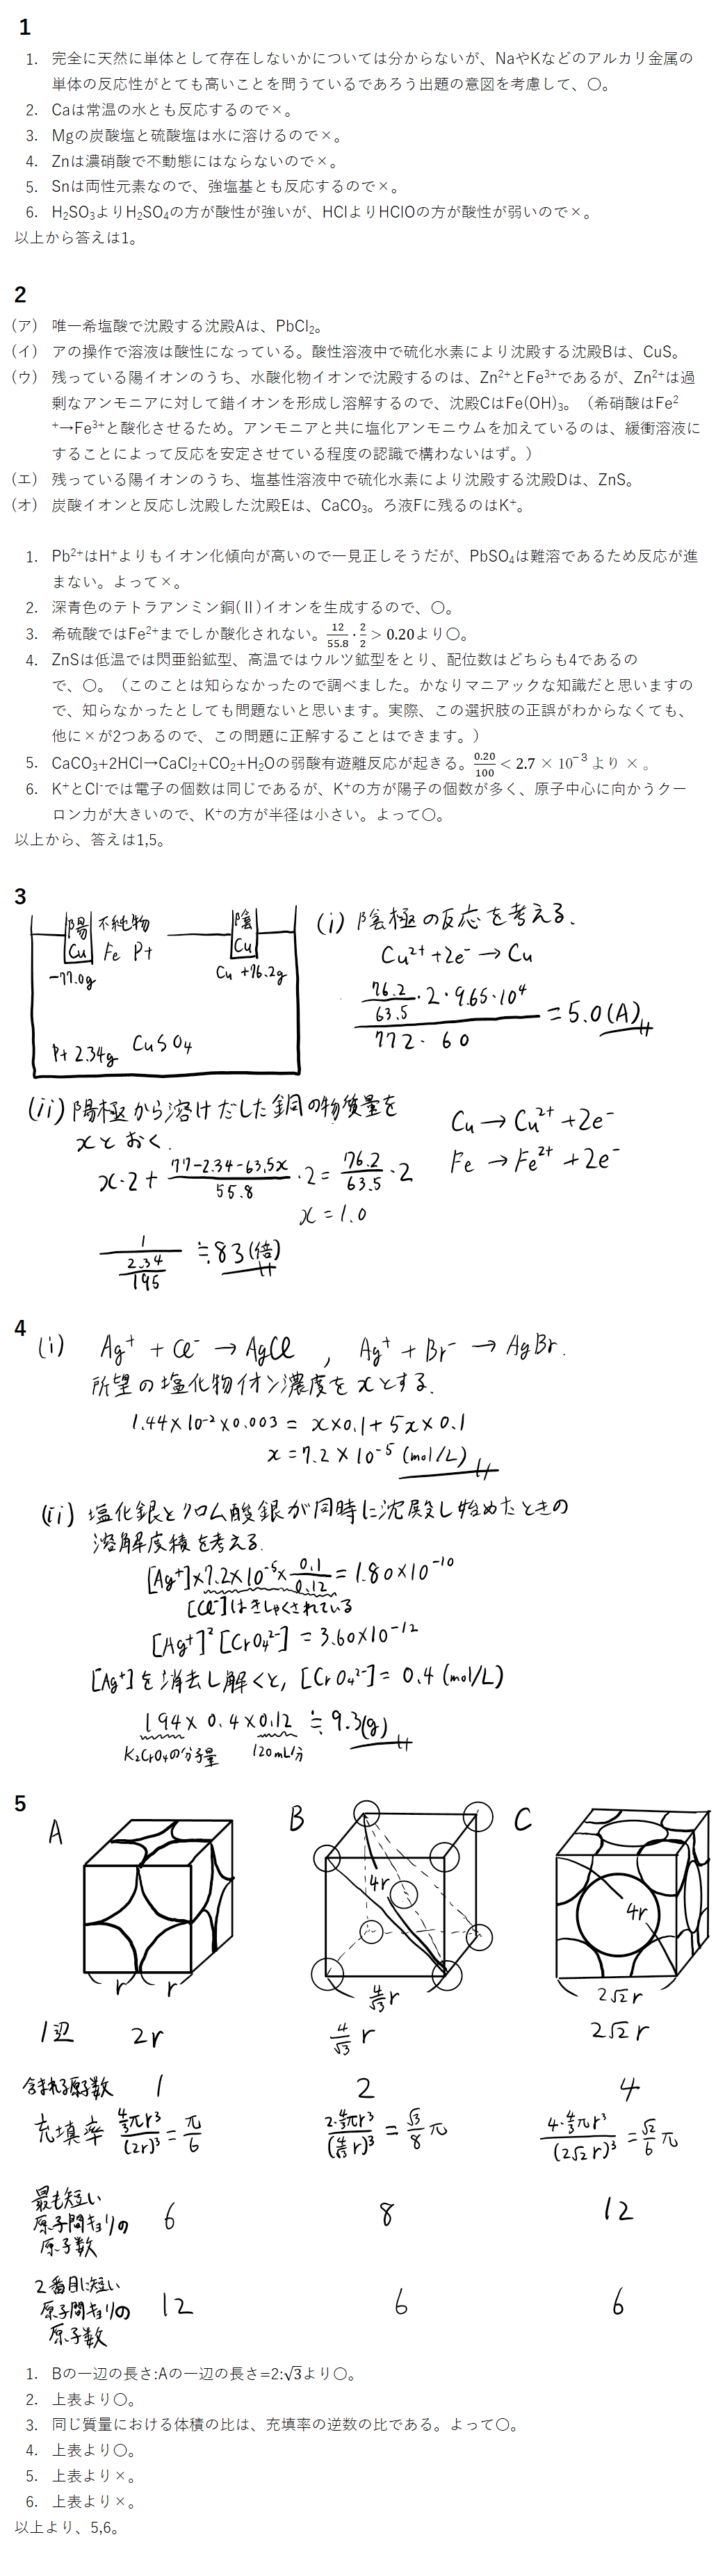 1
1. 完全に天然に単体として存在しないかについては分からないが、NaやKなどのアルカリ金属の
単体の反応性がとても高いことを問うているであろう出題の意図を考慮して、〇。
2. Caは常温の水とも反応するので×。
3. Mgの炭酸塩と硫酸塩は水に溶けるので×。
4. Znは濃硝酸で不動態にはならないので×。
5. Snは両性元素なので、強塩基とも反応するので×。
6. H₂SO₃よりH₂SO₄の方が酸性が強いが、HClよりHClOの方が酸性が弱いので×。
以上から答えは1。
2
(ア) 唯一希塩酸で沈殿する沈殿Aは、PbCl₂。
(イ) アの操作で溶液は酸性になっている。酸性溶液中で硫化水素により沈殿する沈殿Bは、CuS。
(ウ) 残っている陽イオンのうち、水酸化物イオンで沈殿するのは、Zn²⁺とFe³⁺であるが、Zn²⁺は過
剰なアンモニアに対して錯イオンを形成し溶解するので、沈殿CはFe(OH)₃。（希硝酸はFe²
⁺→Fe³⁺と酸化させるため。アンモニアと共に塩化アンモニウムを加えているのは、緩衝溶液に
することによって反応を安定させている程度の認識で構わないはず。）
(エ) 残っている陽イオンのうち、塩基性溶液中で硫化水素により沈殿する沈殿Dは、ZnS。
(オ) 炭酸イオンと反応し沈殿した沈殿Eは、CaCO₃。ろ液Fに残るのはK⁺。
1. Pb²⁺はH⁺よりもイオン化傾向が高いので一見正しそうだが、PbSO₄は難溶であるため反応が進
まない。よって×。
2. 深青色のテトラアンミン銅(Ⅱ)イオンを生成するので、〇。
3. 希硫酸ではFe²⁺までしか酸化されない。12/55.8・2/2 > 0.20より〇。
4. ZnSは低温では閃亜鉛鉱型、高温ではウルツ鉱型をとり、配位数はどちらも4であるの
で、〇。（このことは知らなかったので調べました。かなりマニアックな知識だと思いますの
で、知らなかったとしても問題ないと思います。実際、この選択肢の正誤がわからなくても、
他に×が2つあるので、この問題に正解することはできます。）
5. CaCO₃+2HCl→CaCl₂+CO₂+H₂Oの弱酸有遊離反応が起きる。0.20/100 < 2.7 × 10⁻³ より × 。
6. K⁺とCl⁻では電子の個数は同じであるが、K⁺の方が陽子の個数が多く、原子中心に向かうクー
ロン力が大きいので、K⁺の方が半径は小さい。よって〇。
以上から、答えは1,5。
3
陽 不純物 陰
Cu Fe Pt Cu
-77.0g Cu +76.2g
Pt 2.34g CuSO₄
(i) 陰極の反応を考える.
Cu²⁺+2e⁻→Cu
(76.2/63.5・2・9.65・10⁴)/(772・60) = 5.0(A)
(ii) 陽極から溶けだした銅の物質量を
xとおく.
Cu→Cu²⁺+2e⁻
Fe→Fe²⁺+2e⁻
x・2+(77-2.34-63.5x)/55.8・2=76.2/63.5・2
x=1.0
1/(2.34/195) ≒83(倍)
4
(i) Ag⁺+Cl⁻→AgCl , Ag⁺+Br⁻→AgBr.
所望の塩化物イオン濃度をxとする.
1.44×10⁻²×0.003=x×0.1+5x×0.1
x=7.2×10⁻⁵(mol/L)
(ii) 塩化銀とクロム酸銀が同時に沈殿し始めたときの
溶解度積を考える.
[Ag⁺]×7.2×10⁻⁵×0.1/0.12=1.80×10⁻¹⁰
[Cl⁻]はきしゃくされている
[Ag⁺]²[CrO₄²⁻]=3.60×10⁻¹²
[Ag⁺]を消去し解くと, [CrO₄²⁻]=0.4(mol/L)
194×0.4×0.12≒9.3(g)
K₂CrO₄の分子量 120mL分
5
A B C
4r 4r
r r 4/√3 r 2√2 r
1辺 2r 4/√3 r 2√2 r
含まれる原子数 1 2 4
充填率 (4/3πr³)/(2r)³=π/6 (2・4/3πr³)/(4/√3 r)³=√3/8 π (4・4/3πr³)/(2√2 r)³=√2/6 π
最も短い
原子間キョリの 6 8 12
原子数
2番目に短い
原子間キョリの 12 6 6
原子数
1. Bの一辺の長さ:Aの一辺の長さ=2:√3より〇。
2. 上表より〇。
3. 同じ質量における体積の比は、充填率の逆数の比である。よって〇。
4. 上表より〇。
5. 上表より×。
6. 上表より×。
以上より、5,6。